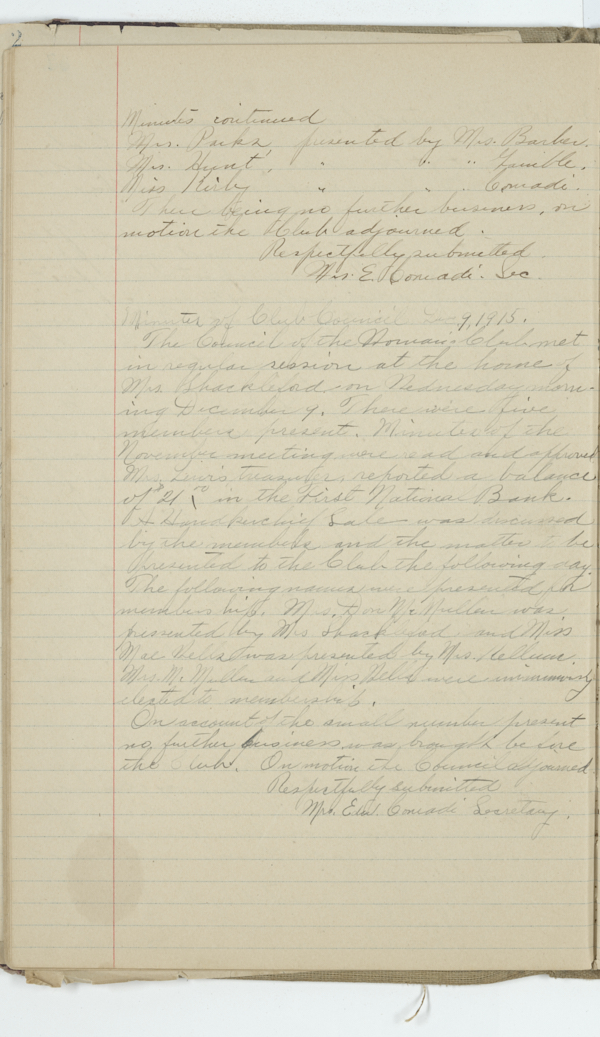 2
Minutes continued
Mrs. Parks, presented by Mrs. Barber.
Mrs. Hunt, " " " Gamble.
Miss Kirby " " " Conradi.
There being no further business, on
motion the Club adjourned.
Respectfully submitted
Mrs. E. Conradi. Sec.
Minutes of Club Council 9, 1915.
The Council of the Woman's Club met
in regular session at the home of
Mrs. Shackleford on Wednesday morn-
ing December 9. There were five
members present. Minutes of the
November meeting were read and approved
Mrs. Lewis treasurer, reported a balance
of $21 in the First National Bank.
A Handkerchief Sale was discussed
by the members and the matter to be
presented to the Club the following day.
The following names were presented for
membership. Mrs. Don McMullen was
presented by Mrs Shackleford and Miss
Mae was presented by Mrs. Kellum.
Mrs. McMullen and Miss were unanimously
elected to membership.
On account of the small number present
no further business was brought before
the Club. On motion the Council adjourned.
Respectfully submitted
Mrs. Ed. Conradi Secretary.